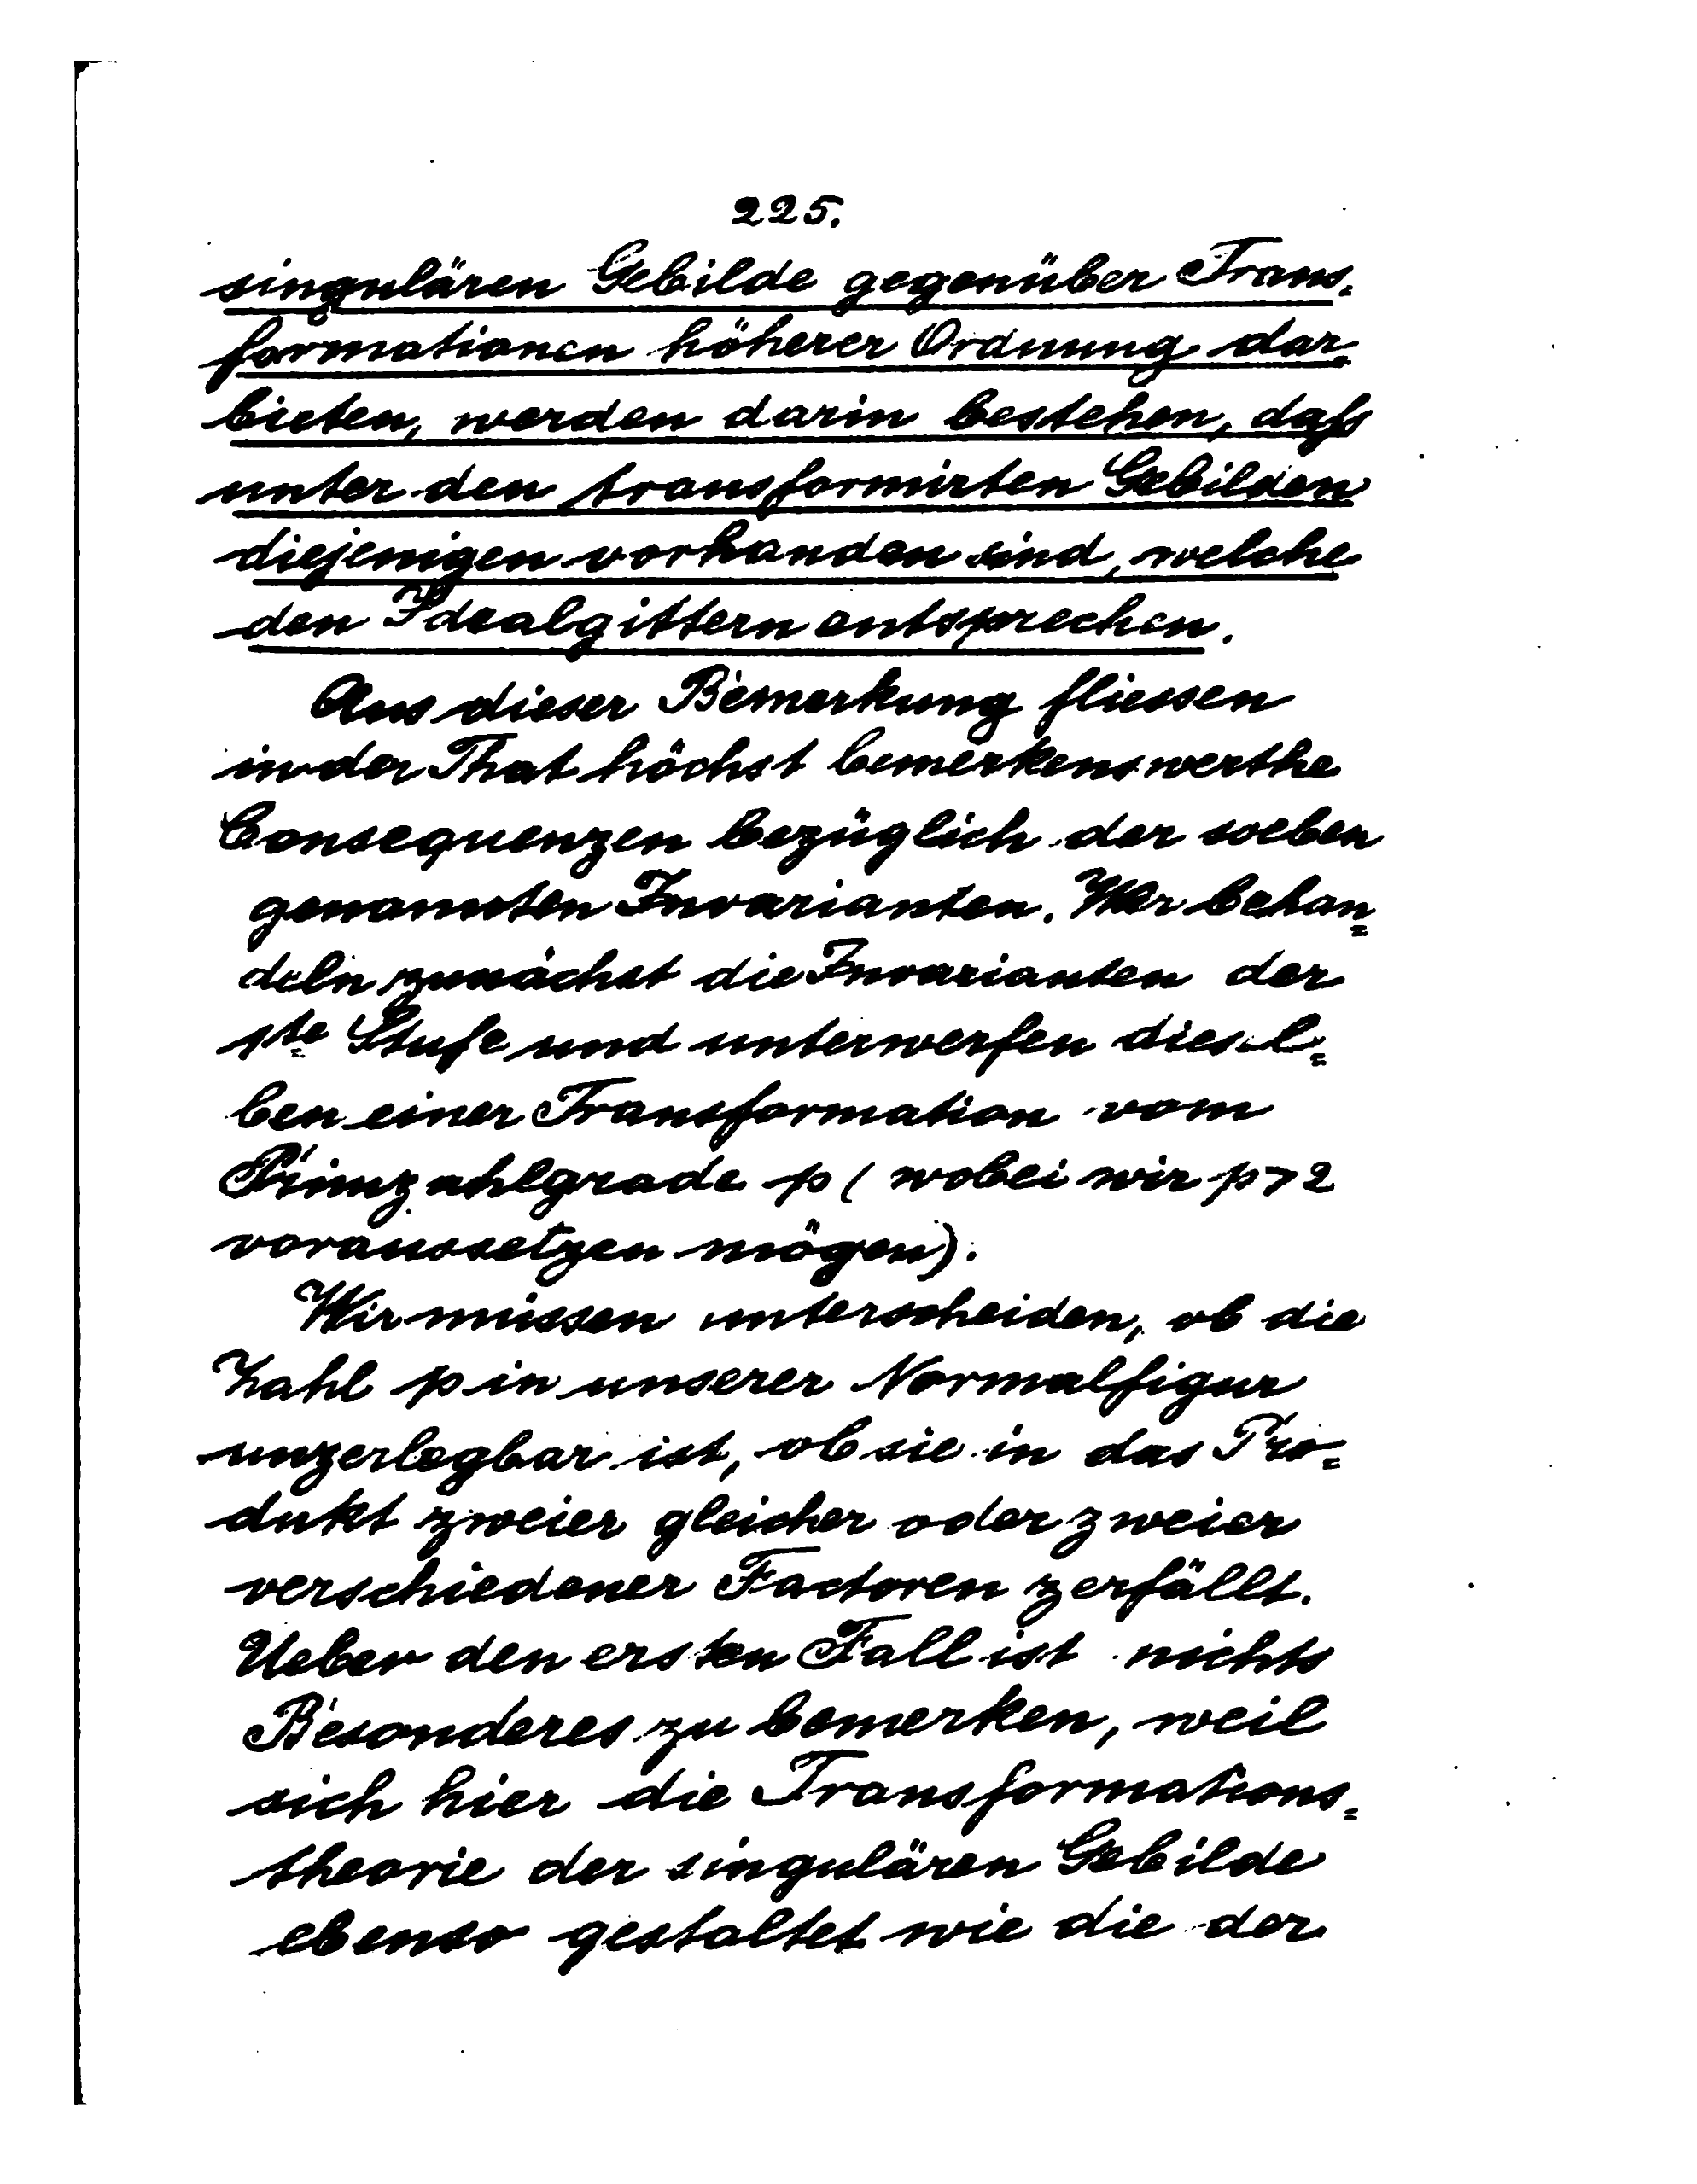 225.
singulären Gebilde gegenüber Trans-
formationen höherer Ordnung dar-
bieten, werden darin bestehen, daß
unter den transformirten Gebilden
diejenigen vorhanden sind, welche
den Idealgittern entsprechen.
Aus dieser Bemerkung fliessen
in der That höchst bemerkenswerthe
Consequenzen bezüglich der soeben
genannten Invarianten. Wir behan=
deln zunächst die Invarianten der
1te Stufe und unterwerfen diesel=
ben einer Transformation vom
Primzahlgrade p (wobei wir p>2
voraussetzen mögen).
Wir müssen unterscheiden, ob die
Zahl p in unserer Normalfigur
unzerlegbar ist, ob sie in das Pro=
dukt zweier gleicher oder zweier
verschiedener Factoren zerfällt.
Ueber den ersten Fall ist nichts
Besonderes zu bemerken, weil
sich hier die Transformations=
theorie der singulären Gebilde
ebenso gestaltet wie die der